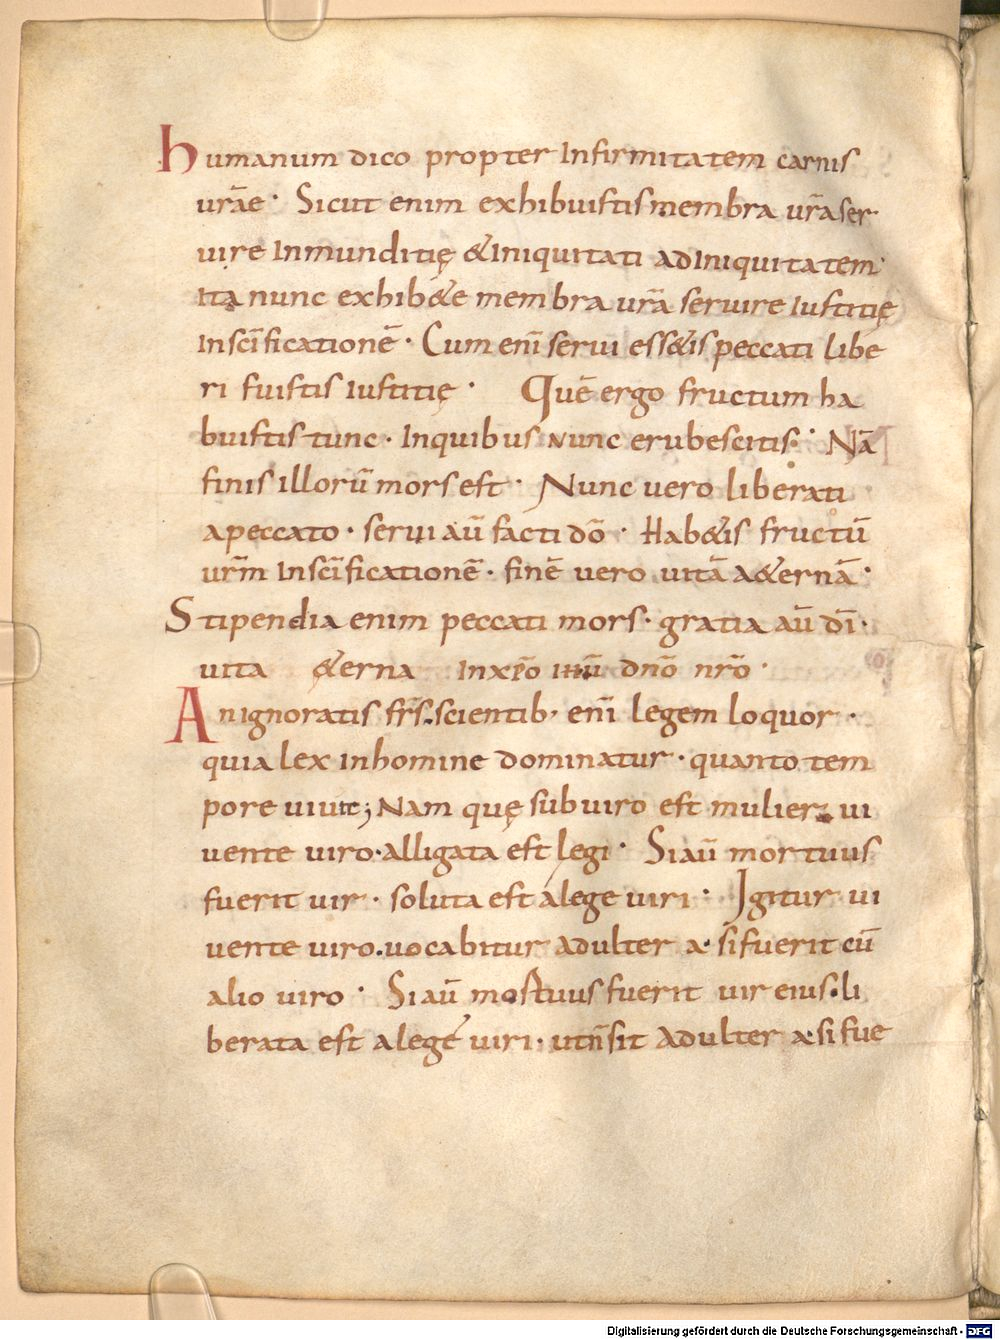 Humanum dico propter Infirmitatem carnis
urae· Sicut enim exhibuistis membra ura ser
uire Inmunditię &Iniquitati adIniquitatem·
Ita nunc exhib&e membra urā seruire Iustitię
Inscīficationē· Cum enī serui ess&is peccati libe
ri fuistis Iustitię· Quē ergo fructum ha
buistis tunc· Inquibus nunc erubescitis· Nā
finis illorū mors est· Nunc uero liberati
apeccato· serui aū facti dō· Hab&is fructū
urm̄ Inscīficationē· finē uero uitā a&ernā·
Stipendia enim peccati mors· gratia aū dī·
uita &erna Inxpo dnō nrō·
An ignoratis frs̄ scientib· enī legem loquor·
quia lex Inhomine dominatur· quanto tem
pore uiuit; Nam quę sub uiro est mulier ui
uente uiro· alligata est legi· Siaū mortuus
fuerit uir· soluta est alege uiri· Igitur ui
uente uiro. uocabitur adulter a· si fuerit cū
alio uiro· Siaū mortuus fuerit uir eius· li
berata est alege uiri· utn̄sit adulter a· si fue
Digitalisierung gefördert durch die Deutsche Forschungsgemeinschaft - DFG